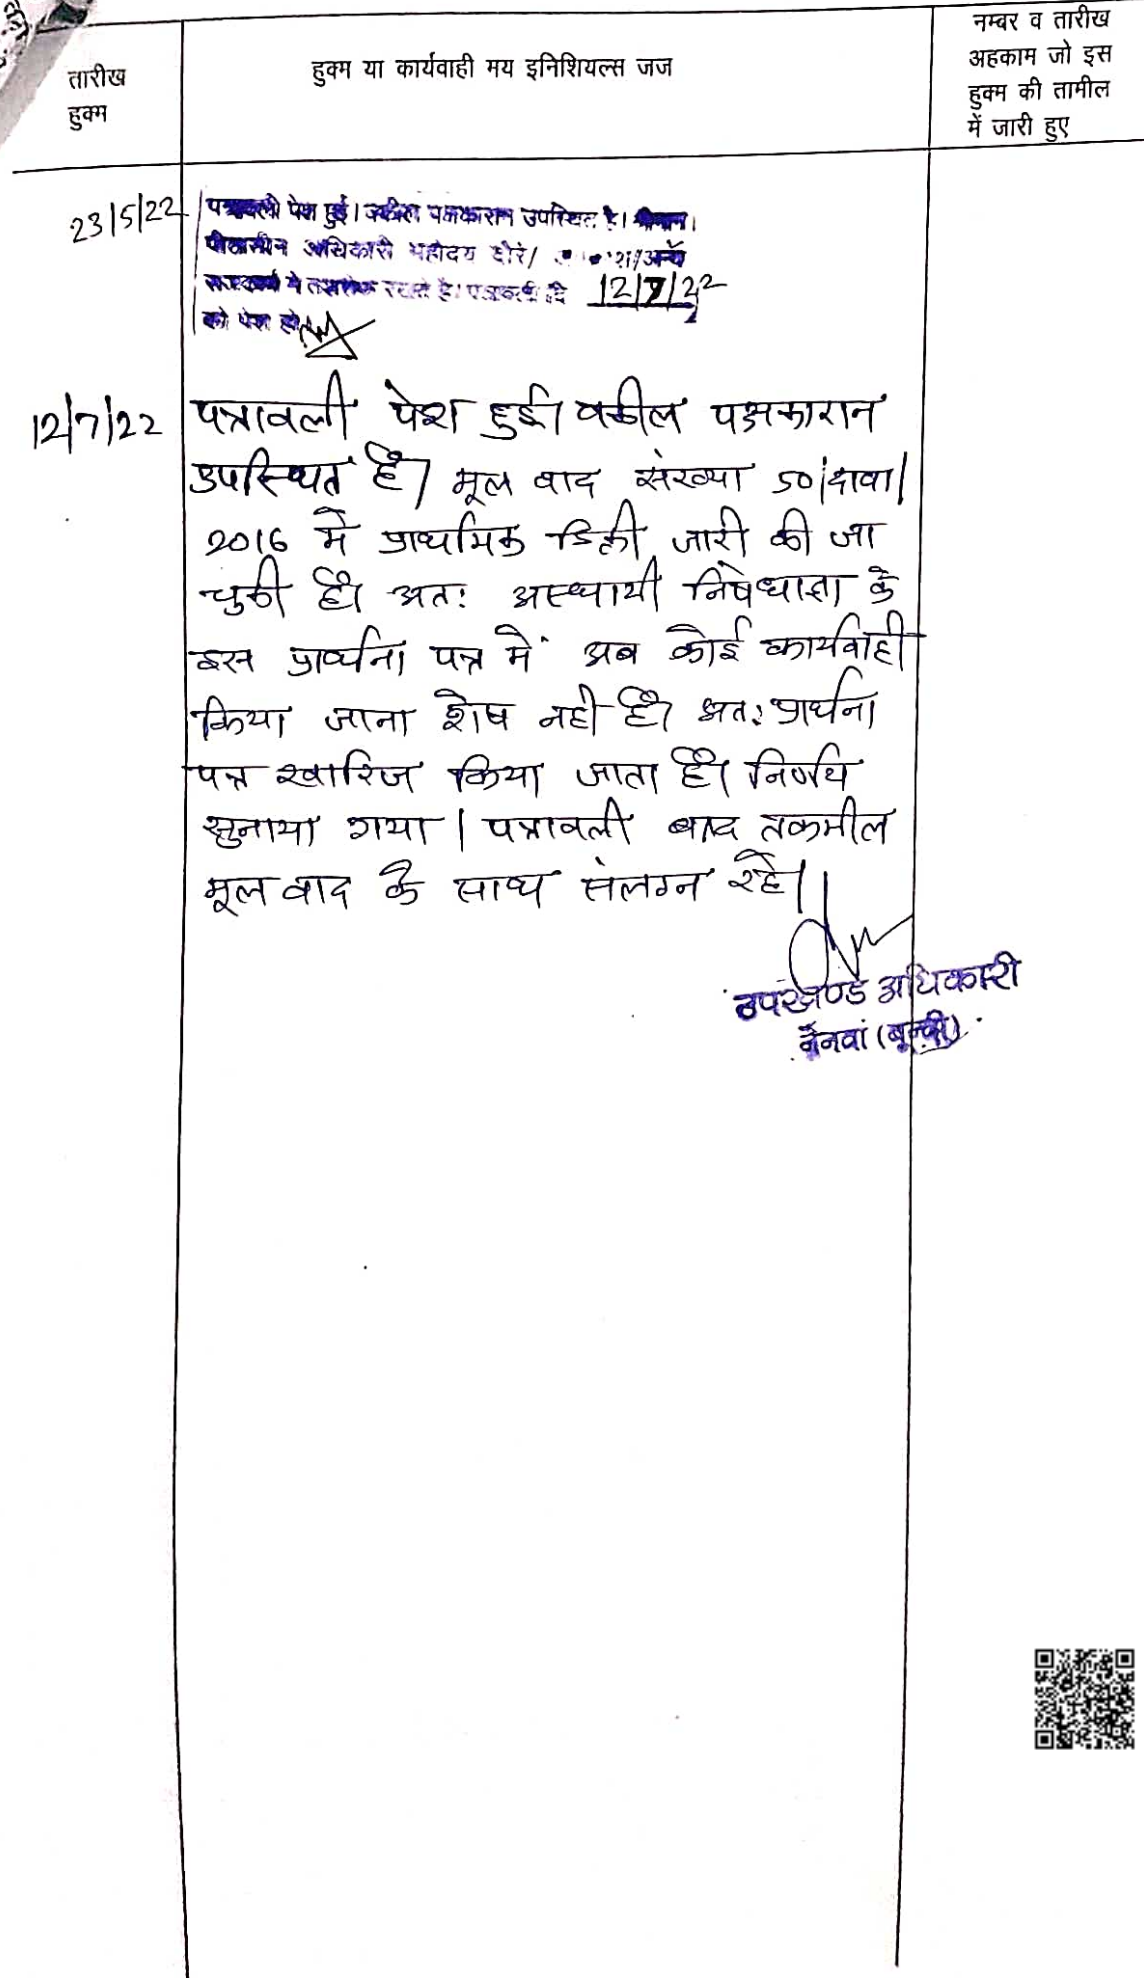 तारीख
हुक्म
हुक्म या कार्यवाही मय इनिशियल्स जज
नम्बर व तारीख
अहकाम जो इस
हुक्म की तामील
में जारी हुए
23/5/22
पत्रावली पेश हुई। वकील पक्षकारान उपस्थित है।
पीठासीन अधिकारी महोदय दौरे/ अन्य
राजकार्य में तशरीफ रखते है। पत्रावली दि 12/7/22
को पेश हो
12/7/22
पत्रावली पेश हुई। वकील पक्षकारान
उपस्थित है। मूल वाद संख्या 50/दावा/
2016 में प्राथमिक डिक्री जारी की जा
चुकी है। अतः अस्थायी निषेधाज्ञा के
इस प्रार्थना पत्र में अब कोई कार्यवाही
किया जाना शेष नही है। अतः प्रार्थना
पत्र खारिज किया जाता है। निर्णय
सुनाया गया। पत्रावली बाद तकमील
मूल वाद के साथ संलग्न रहे।
उपखण्ड अधिकारी
नैनवां (बून्दी)